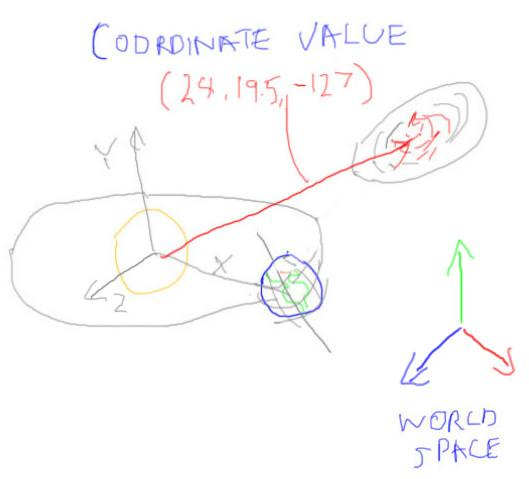 COORDINATE VALUE
(24, 19.5, -127)
Y
X
Z
WORLD
SPACE